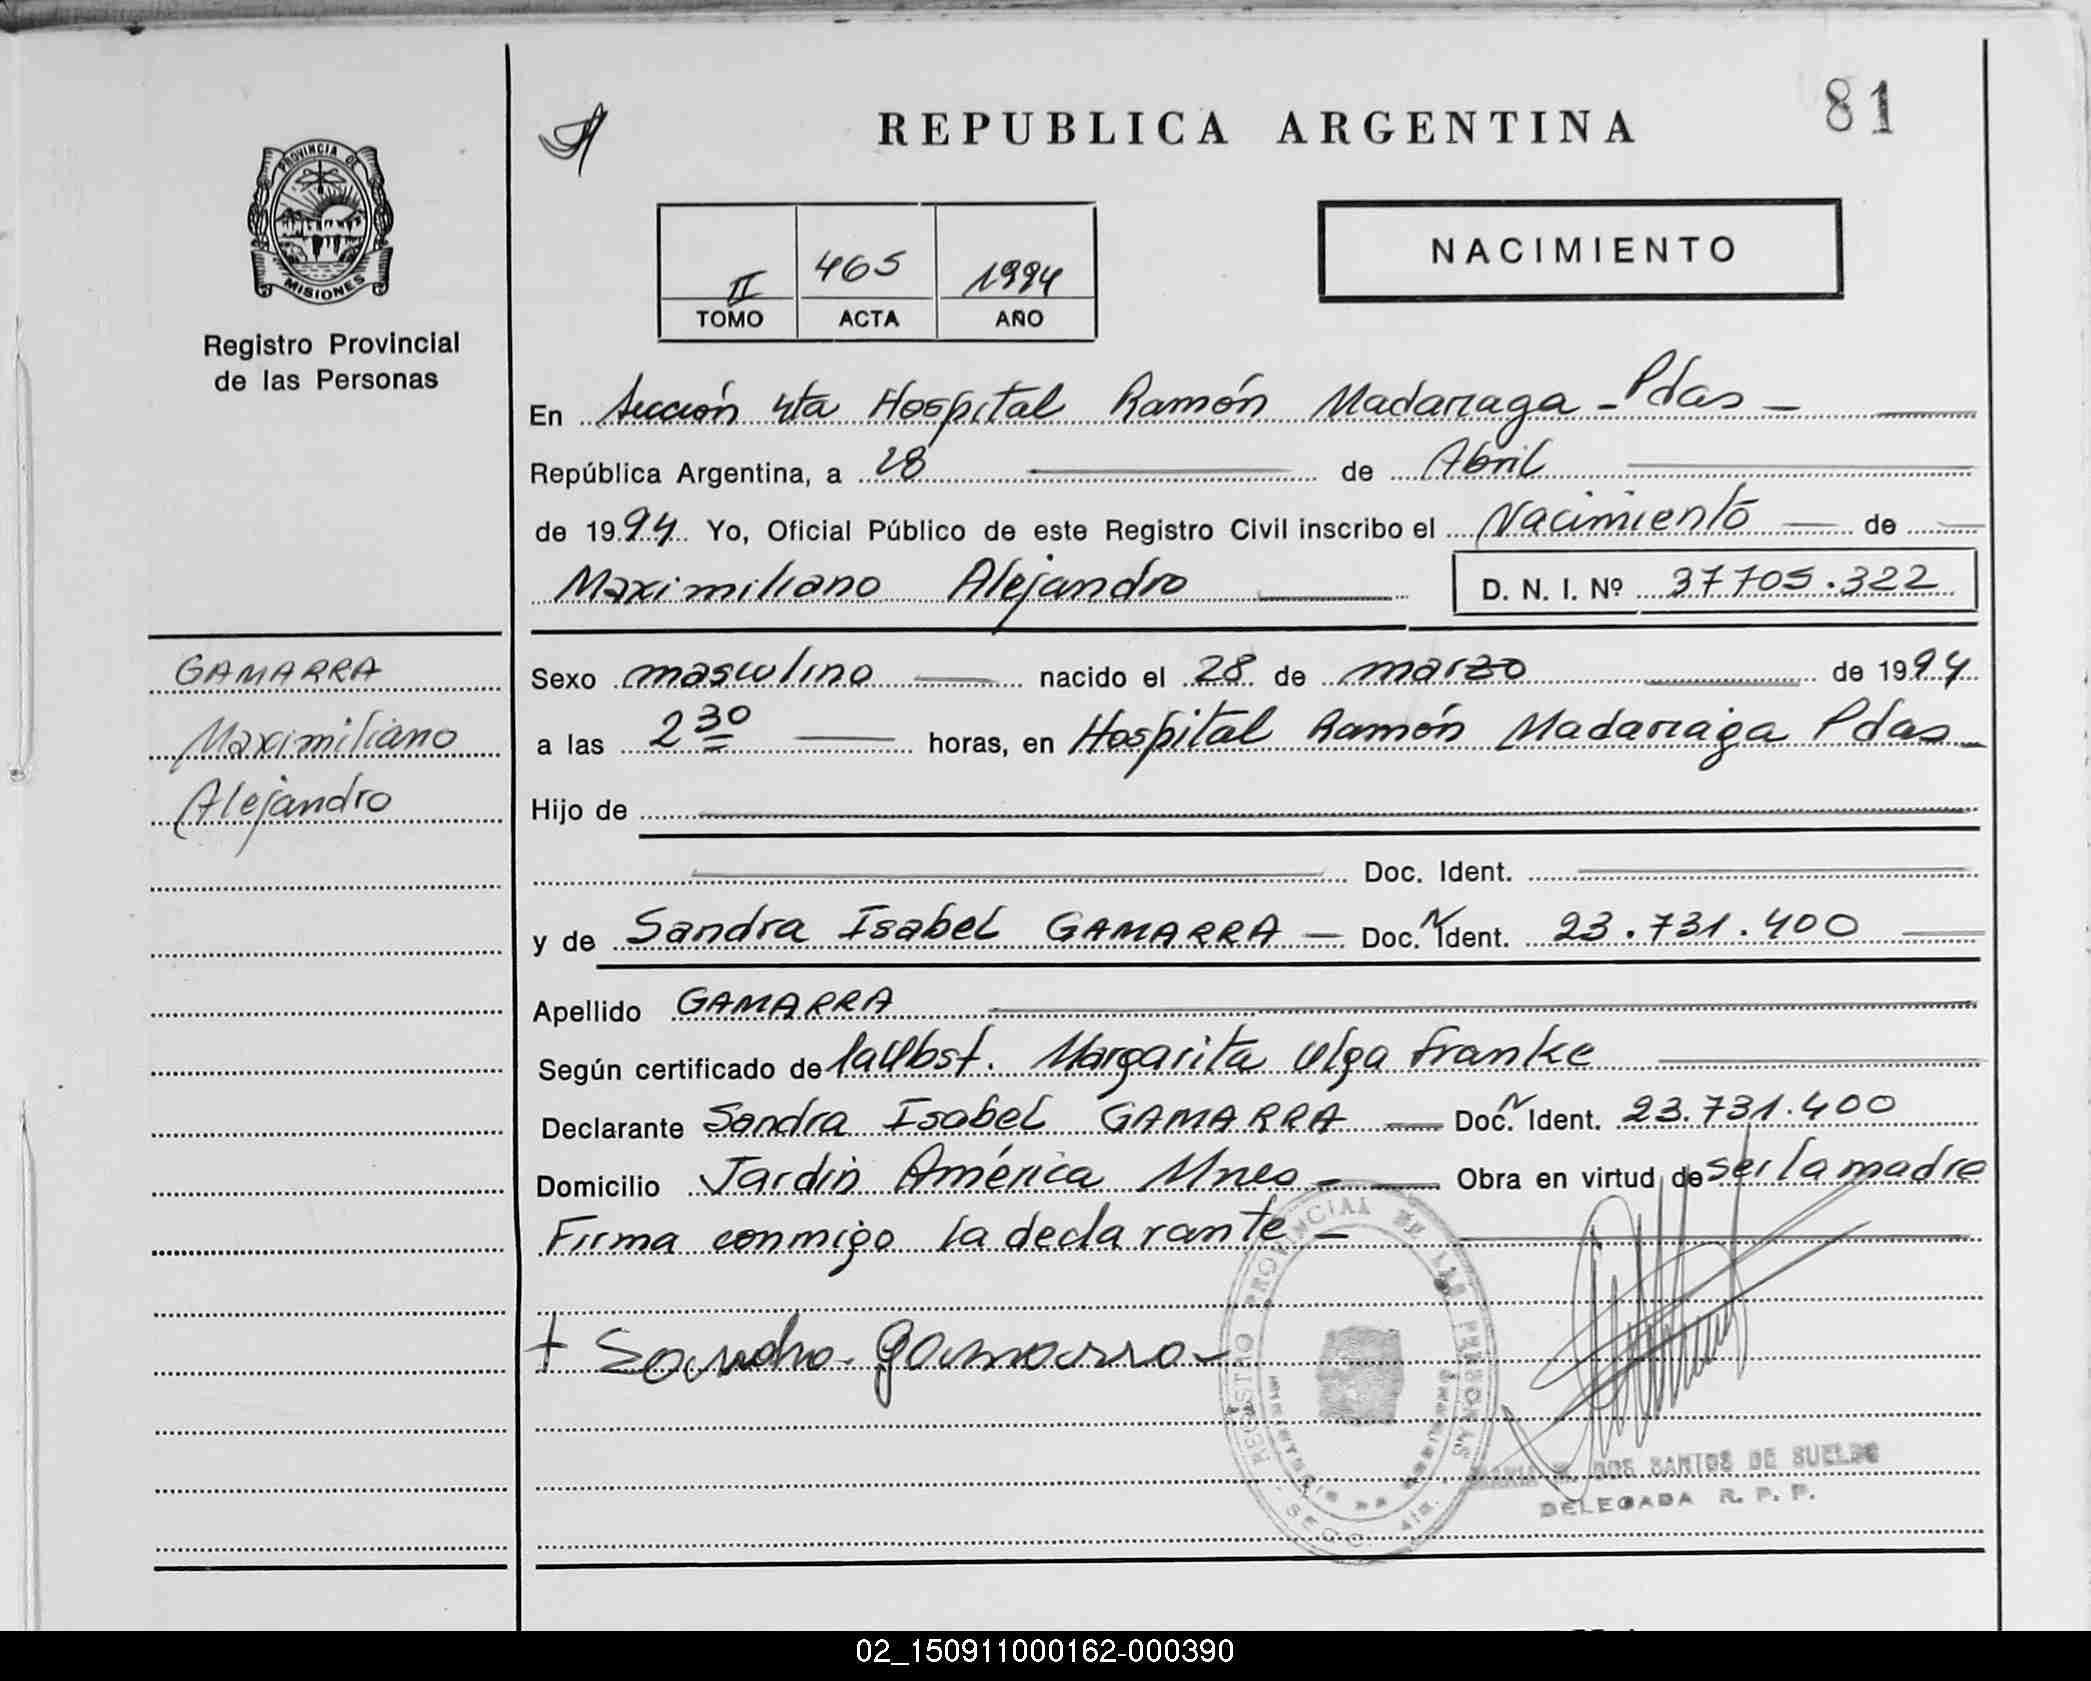 REPUBLICA ARGENTINA
81
PROVINCIA DE
MISIONES
Registro Provincial
de las Personas
II 465 1994
TOMO ACTA AÑO
NACIMIENTO
En Sección 4ta Hospital Ramón Madariaga - Pdas -
República Argentina, a 28 de Abril
de 1994 Yo, Oficial Público de este Registro Civil inscribo el Nacimiento de
Maximiliano Alejandro D. N. I. Nº 37705.322
GAMARRA
Maximiliano
Alejandro
Sexo masculino nacido el 28 de marzo de 1994
a las 2 30 horas, en Hospital Ramón Madariaga Pdas
Hijo de
Doc. Ident.
y de Sandra Isabel GAMARRA - Doc. N Ident. 23.731.400
Apellido GAMARRA
Según certificado de la Obst. Margarita Olga Franke
Declarante Sandra Isabel GAMARRA - Doc. N Ident. 23.731.400
Domicilio Jardín América Mnes - Obra en virtud de ser la madre
Firma conmigo la declarante -
+ Sandra Gamarra
REGISTRO PROVINCIAL DE LAS PERSONAS
SECC. 4ta.
DOS SANTOS DE SUELDO
DELEGADA R. P. P.
02_150911000162-000390